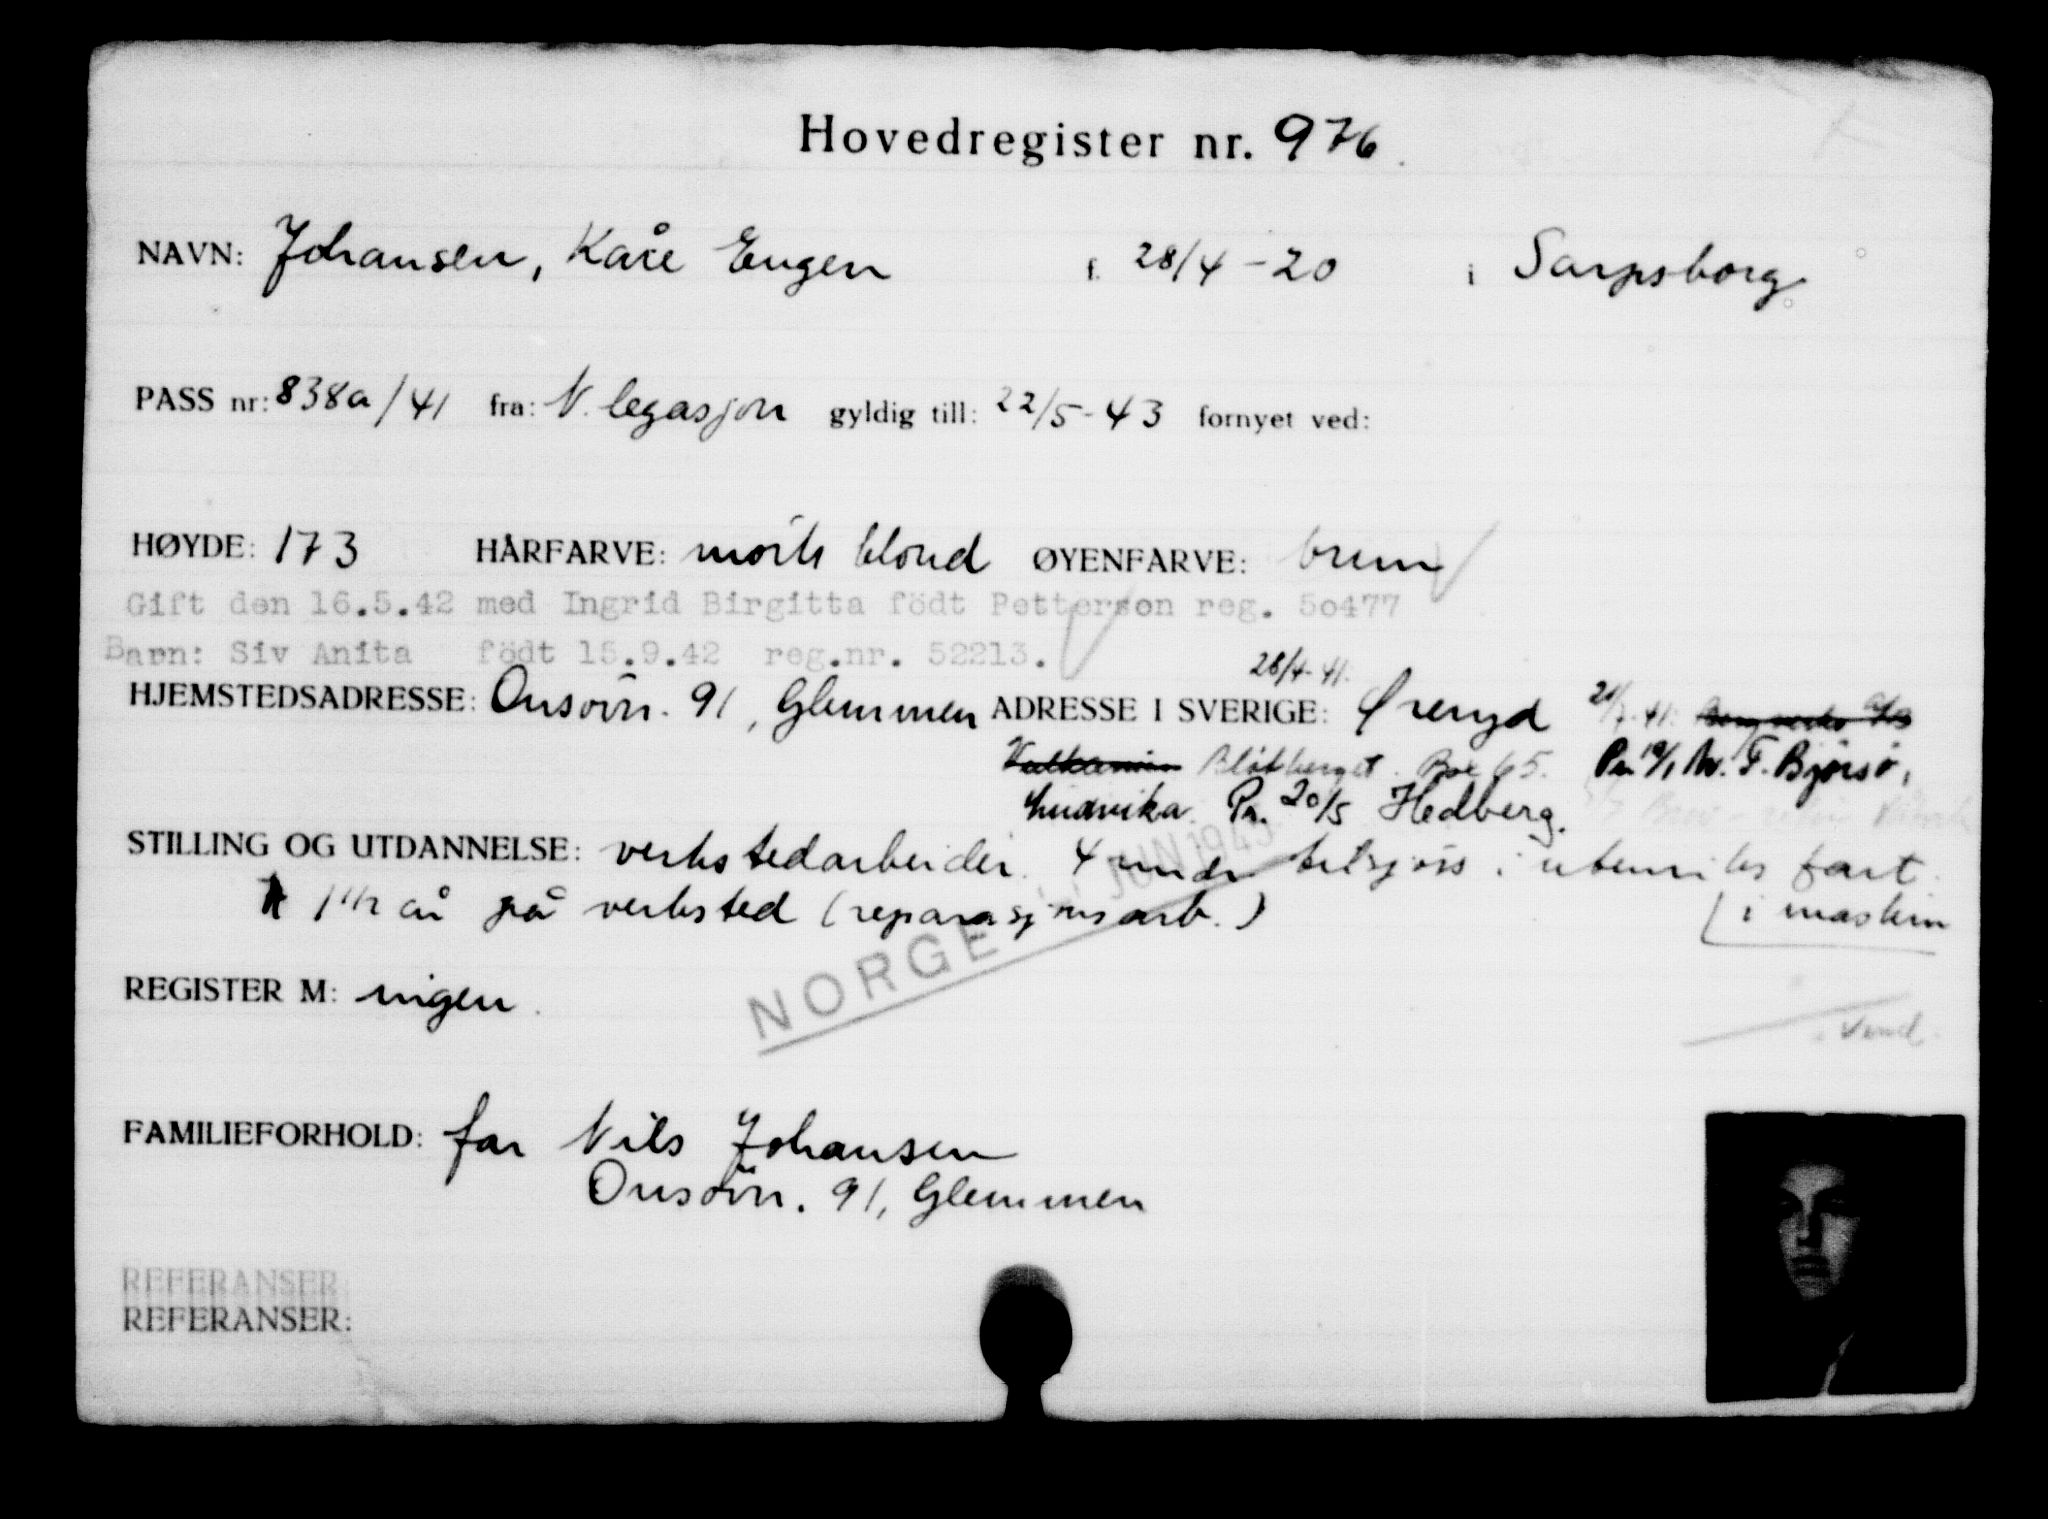 Hovedregister nr. 976
NAVN: Johansen, Kåre Eugen f. 28/4-20 i Sarpsborg
PASS nr: 838a/41 fra: N. legasjon gyldig till: 22/5-43 fornyet ved:
HØYDE: 173 HÅRFARVE: mörk blond ØYENFARVE: brun
Gift den 16.5.42 med Ingrid Birgitta födt Petterson reg. 50477
Barn: Siv Anita födt 15.9.42 reg.nr. 52213.
28/4-41.
HJEMSTEDSADRESSE: Onsöin. 91, Glemmen ADRESSE I SVERIGE: Öreryd 21/7-41:
Blötberget. Box 65. Pr. 19/1 Av. F. Björsö,
Ludvika. Pr. 20/5 Hedberg.
STILLING OG UTDANNELSE: verkstedarbeider. 4 mndr. tilsjøss i utenriks fart.
1 1/2 år på verksted (reparasjonsarb.) i maskin
NORGE JUN 1945
REGISTER M: ingen.
Vend.
FAMILIEFORHOLD: far Nils Johansen
Onsöin. 91, Glemmen
REFERANSER:
REFERANSER: